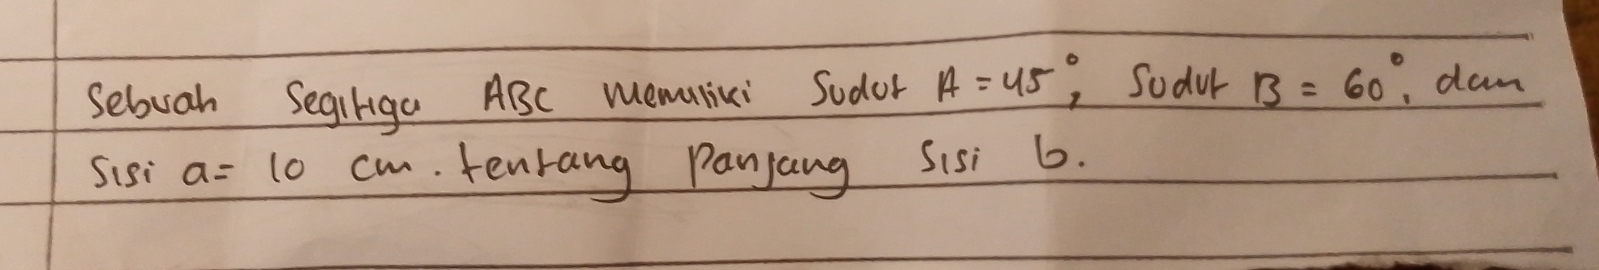 Sebuah Segitiga ABC memiliki Sudut A = 45°, Sudut B = 60°, dan
Sisi a = 10 cm. tentang Panjang Sisi b.